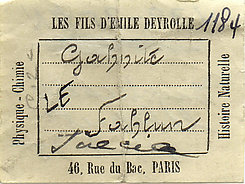 LES FILS D'EMILE DEYROLLE
1184
Physique - Chimie
Gahnite
LE
Fahlun
Suède
Histoire Naturelle
46, Rue du Bac, PARIS